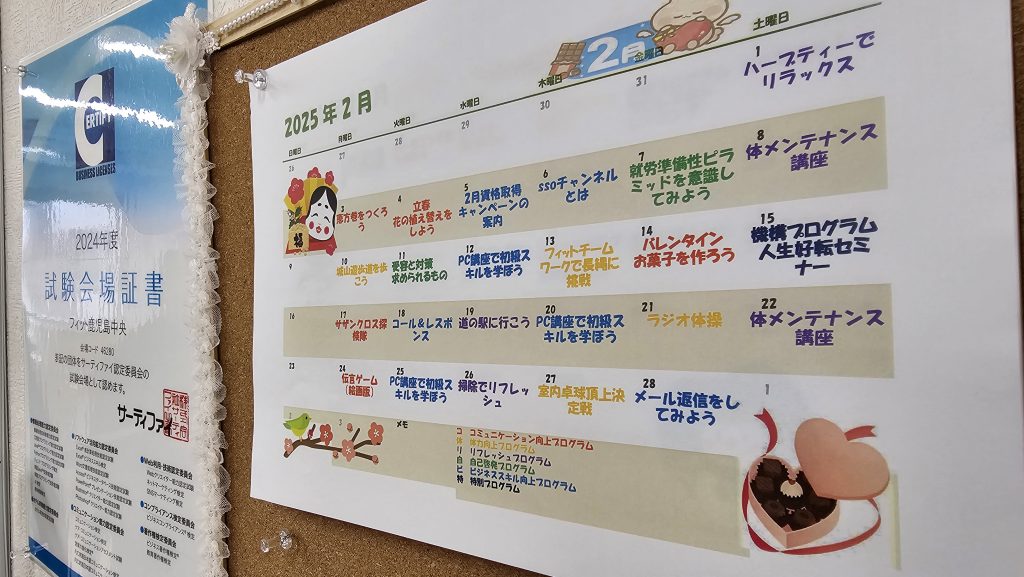 CERTIFY
BUSINESS LICENSES
2024年度
試験会場証書
フィット鹿児島中央
会場コード 46280
表記の団体をサーティファイ認定委員会の
試験会場として認めます。
サーティファイ
●Web利用・技術認定委員会
●コンプライアンス検定委員会
●著作権検定委員会
2月
2025年2月
日曜日
月曜日
火曜日
水曜日
木曜日
金曜日
土曜日
26
27
28
29
30
31
1
ハーブティーで
リラックス
3
恵方巻をつくろ
う
4
立春
花の植え替えを
しよう
5
2月資格取得
キャンペーンの
案内
6
ssoチャンネル
とは
7
就労準備性ピラ
ミッドを意識し
てみよう
8
体メンテナンス
講座
9
10
城山遊歩道を歩
こう
11
受容と対策
求められるもの
12
PC講座で初級ス
キルを学ぼう
13
フィットチーム
ワークで長縄に
挑戦
14
バレンタイン
お菓子を作ろう
15
機構プログラム
人生好転セミ
ナー
16
17
サザンクロス探
検隊
18
コール＆レスポ
ンス
19
道の駅に行こう
20
PC講座で初級ス
キルを学ぼう
21
ラジオ体操
22
体メンテナンス
講座
23
24
伝言ゲーム
（絵画版）
25
PC講座で初級ス
キルを学ぼう
26
掃除でリフレッ
シュ
27
室内卓球頂上決
定戦
28
メール返信をし
てみよう
1
2
3
メモ
コ コミュニケーション向上プログラム
体 体力向上プログラム
リ リフレッシュプログラム
自 自己啓発プログラム
ビ ビジネススキル向上プログラム
特 特別プログラム